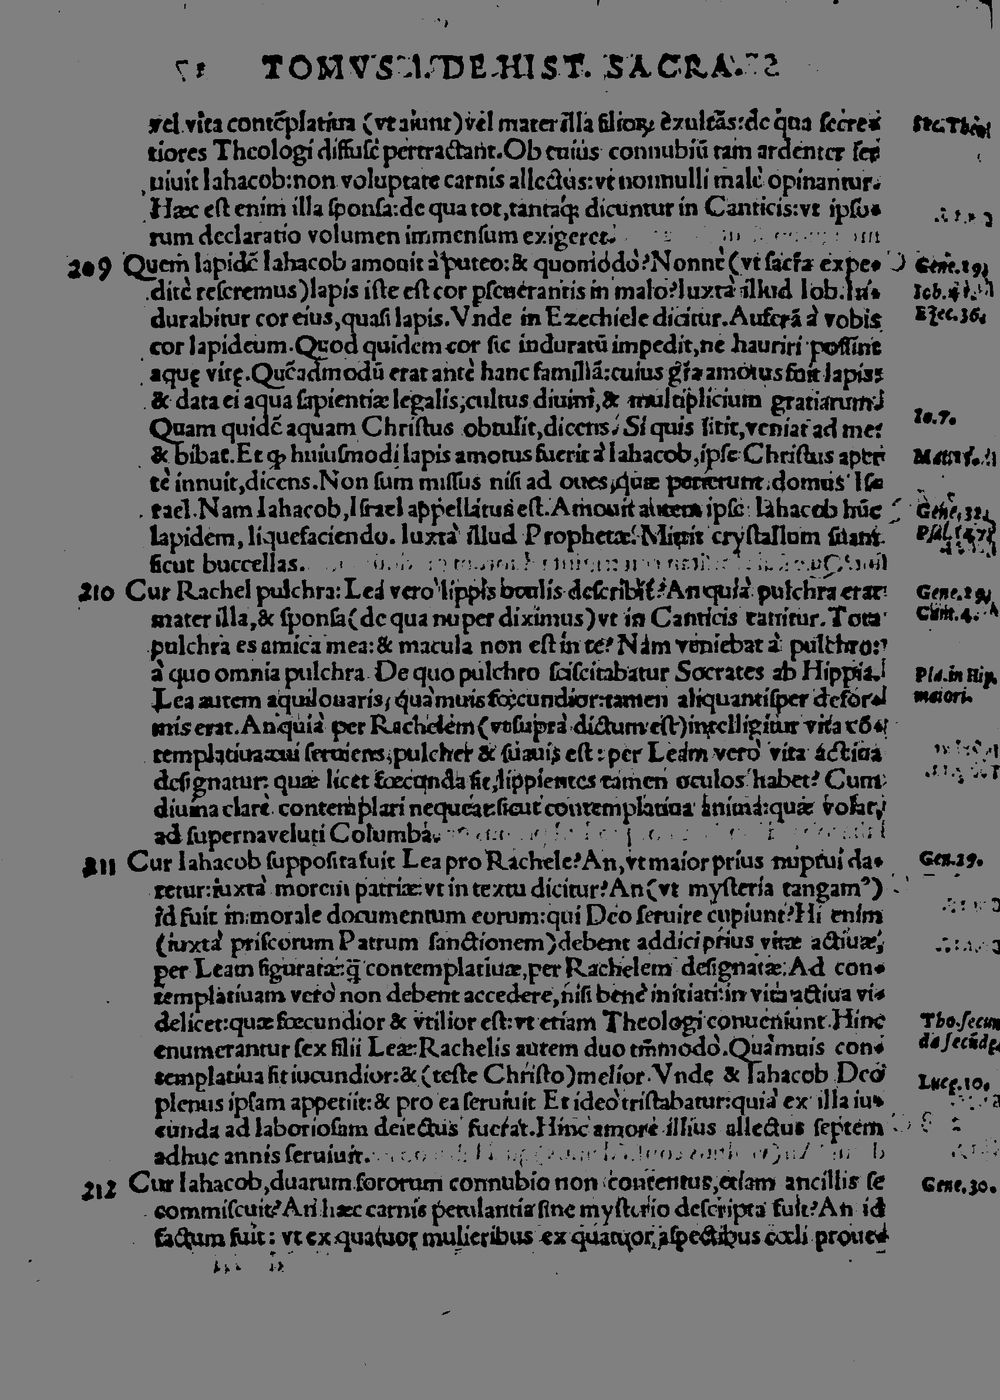 TOMVS I. DE HIST. SACRA.
vel vita contẽplatiua (vt aiunt) vel mater illa filiorꝝ exultãs: de qua secre-
tiores Theologi diffusè pertractant. Ob cuius connubiũ tam ardenter ser
uiuit Iahacob: non voluptate carnis allectus: vt nonnulli malè opinantur.
Hæc est enim illa sponsa: de qua tot, tantaq; dicuntur in Canticis: vt ipso-
rum declaratio volumen immensum exigeret.
209 Quem lapidẽ Iahacob amouit à puteo: & quomodò? Nonnè (vt sacra expe-
ditè reseremus) lapis iste est cor pseuerantis in malo? Iuxtà illud Iob. In-
durabitur cor eius, quasi lapis. Vnde in Ezechiele dicitur. Auferã à vobis
cor lapideum. Quod quidem cor sic induratũ impedit, ne hauriri possint
aquę vitę. Quẽadmodũ erat antè hanc familiã: cuius gr̃a amotus fuit lapis:
& data ei aqua sapientiæ legalis, cultus diuini, & multiplicium gratiarum.
Quam quidẽ aquam Christus obtulit, dicens. Si quis sitit, veniat ad me:
& bibat. Et ꝙ huiusmodi lapis amotus fuerit à Iahacob, ipse Christus aper
tè innuit, dicens. Non sum missus nisi ad oues, quæ perierunt domus Is-
rael. Nam Iahacob, Israel appellatus est. Amouit autem ipse Iahacob hũc
lapidem, liquefaciendo. Iuxtà illud Prophetæ. Mittit crystallum suam
sicut buccellas.
210 Cur Rachel pulchra: Lea verò lippis oculis describit? An quià pulchra erat
mater illa, & sponsa (de qua nuper diximus) vt in Canticis canitur. Tota
pulchra es amica mea: & macula non est in te? Nàm veniebat à pulchro:
à quo omnia pulchra. De quo pulchro sciscitabatur Socrates ab Hippia.
Lea autem aquilonaris, quàmuis fœcundior: tamen aliquantisper defor-
mis erat. An quià per Rachelem (vt suprà dictum est) intelligitur vita cõ-
templatiua: cui seruiens, pulcher & suauis est: per Leam verò vita actiua
designatur: quæ licet fœcunda sit, lippientes tamen oculos habet? Cum
diuina clarè contemplari nequeat: sicut contemplatiua anima: quæ volat,
ad superna veluti Columba.
211 Cur Iahacob supposita fuit Lea pro Rachele? An, vt maior priùs nuptui da-
retur: iuxtà morem patriæ: vt in textu dicitur? An (vt mysteria tangam⁹)
id fuit in morale documentum eorum: qui Deo seruire cupiunt? Hi enim
(iuxtà priscorum Patrum sanctionem) debent addici priùs vitæ actiuæ,
per Leam figuratæ: q̃ contemplatiuæ, per Rachelem designatæ. Ad con-
templatiuam verò non debent accedere, nisi benè initiati: in vita actiua vi-
delicet: quæ fœcundior & vtilior est: vt etiam Theologi conueniunt. Hinc
enumerantur sex filii Leæ: Rachelis autem duo tm̃modò. Quàmuis con-
templatiua sit iucundior: & (teste Christo) melior. Vnde & Iahacob Deo
plenus ipsam appetiit: & pro ea seruiuit Et ideò tristabatur: quià ex illa iu-
cunda ad laboriosam deiectus fuerat. Hinc amore illius allectus septem
adhuc annis seruiuit.
212 Cur Iahacob, duarum sororum connubio non contentus, etiam ancillis se
commiscuit? An hæc carnis petulantia sine mysterio descripta fuit? An id
factum fuit: vt ex quatuor mulieribus ex quatuor aspectibus cœli proue-
Gene. 29.
Iob. 41.
Ezec. 36.
Io. 7.
Gene. 32.
Psal. 147.
Gene. 29.
Cant. 4.
Pla. in Hip.
maiori.
Gen. 29.
Tho. secun
da secũdę
Luce. 10.
Gene. 30.